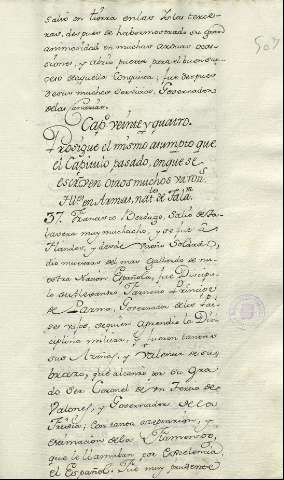 Saltó en tierra en las Islas terce-
ras, despues de haber mostrado su gran
animosidad en muchas arduas oca-
siones, y abrió puerta para el buen suce-
so de aquella Conquista; fue despues
de sus muchos servicios, Governador
de las Canarias.
Capº veinte y quatro.
Prosigue el mismo asumpto que
el Capitulo pasado, en que se
escriven otros muchos varon.s
Ill.es en Armas, nat.les de Tal.a
37. Francisco Verdugo, Salió de Ta-
lavera muy muchacho, y se fue à
Flandes, y desde visoño Soldado,
dio muestras del mas gallardo de nu-
estra Nacion Española, fue Discipu-
lo de Alexandro Farnesio Principe
de Parma, Governador de los Paí-
ses vajos, de quien aprendió la Dis-
ciplina militar, y fueron tantas
sus Azañas, y valentia de su
brazo, que alcanzó en su Gra-
do ser Coronel de un Tercio de
Valones, y Governador de la
Frisia, con tanta aceptacion, y
estimacion de los Flamencos,
que le llamaban por excelencia
el Español. Fue muy prudente